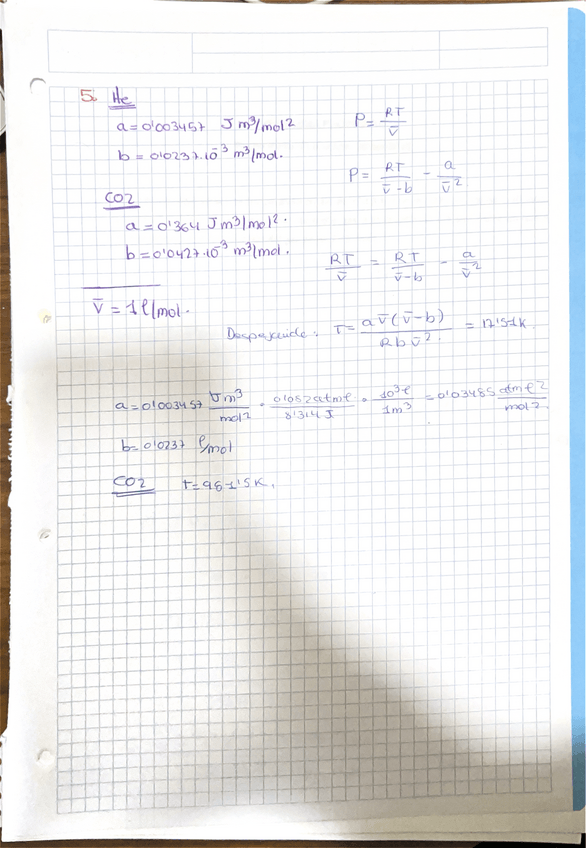 5. He
a = 0'003457 J m³/mol²
P = RT/V̄
b = 0'0237·10⁻³ m³/mol.
P = RT/(V̄-b) - a/V̄²
CO2
a = 0'364 J m³/mol².
b = 0'0427·10⁻³ m³/mol.
RT/V̄ = RT/(V̄-b) - a/V̄²
V̄ = 1ℓ/mol.
Despejando: T = aV̄(V̄-b)/(RbV̄²) = 17'51K.
a = 0'003457 Jm³/mol² · 0'082atmℓ/8'314J · 10³ℓ/1m³ = 0'03485 atmℓ²/mol².
b = 0'0237 ℓ/mol
CO2 T = 981'5K.